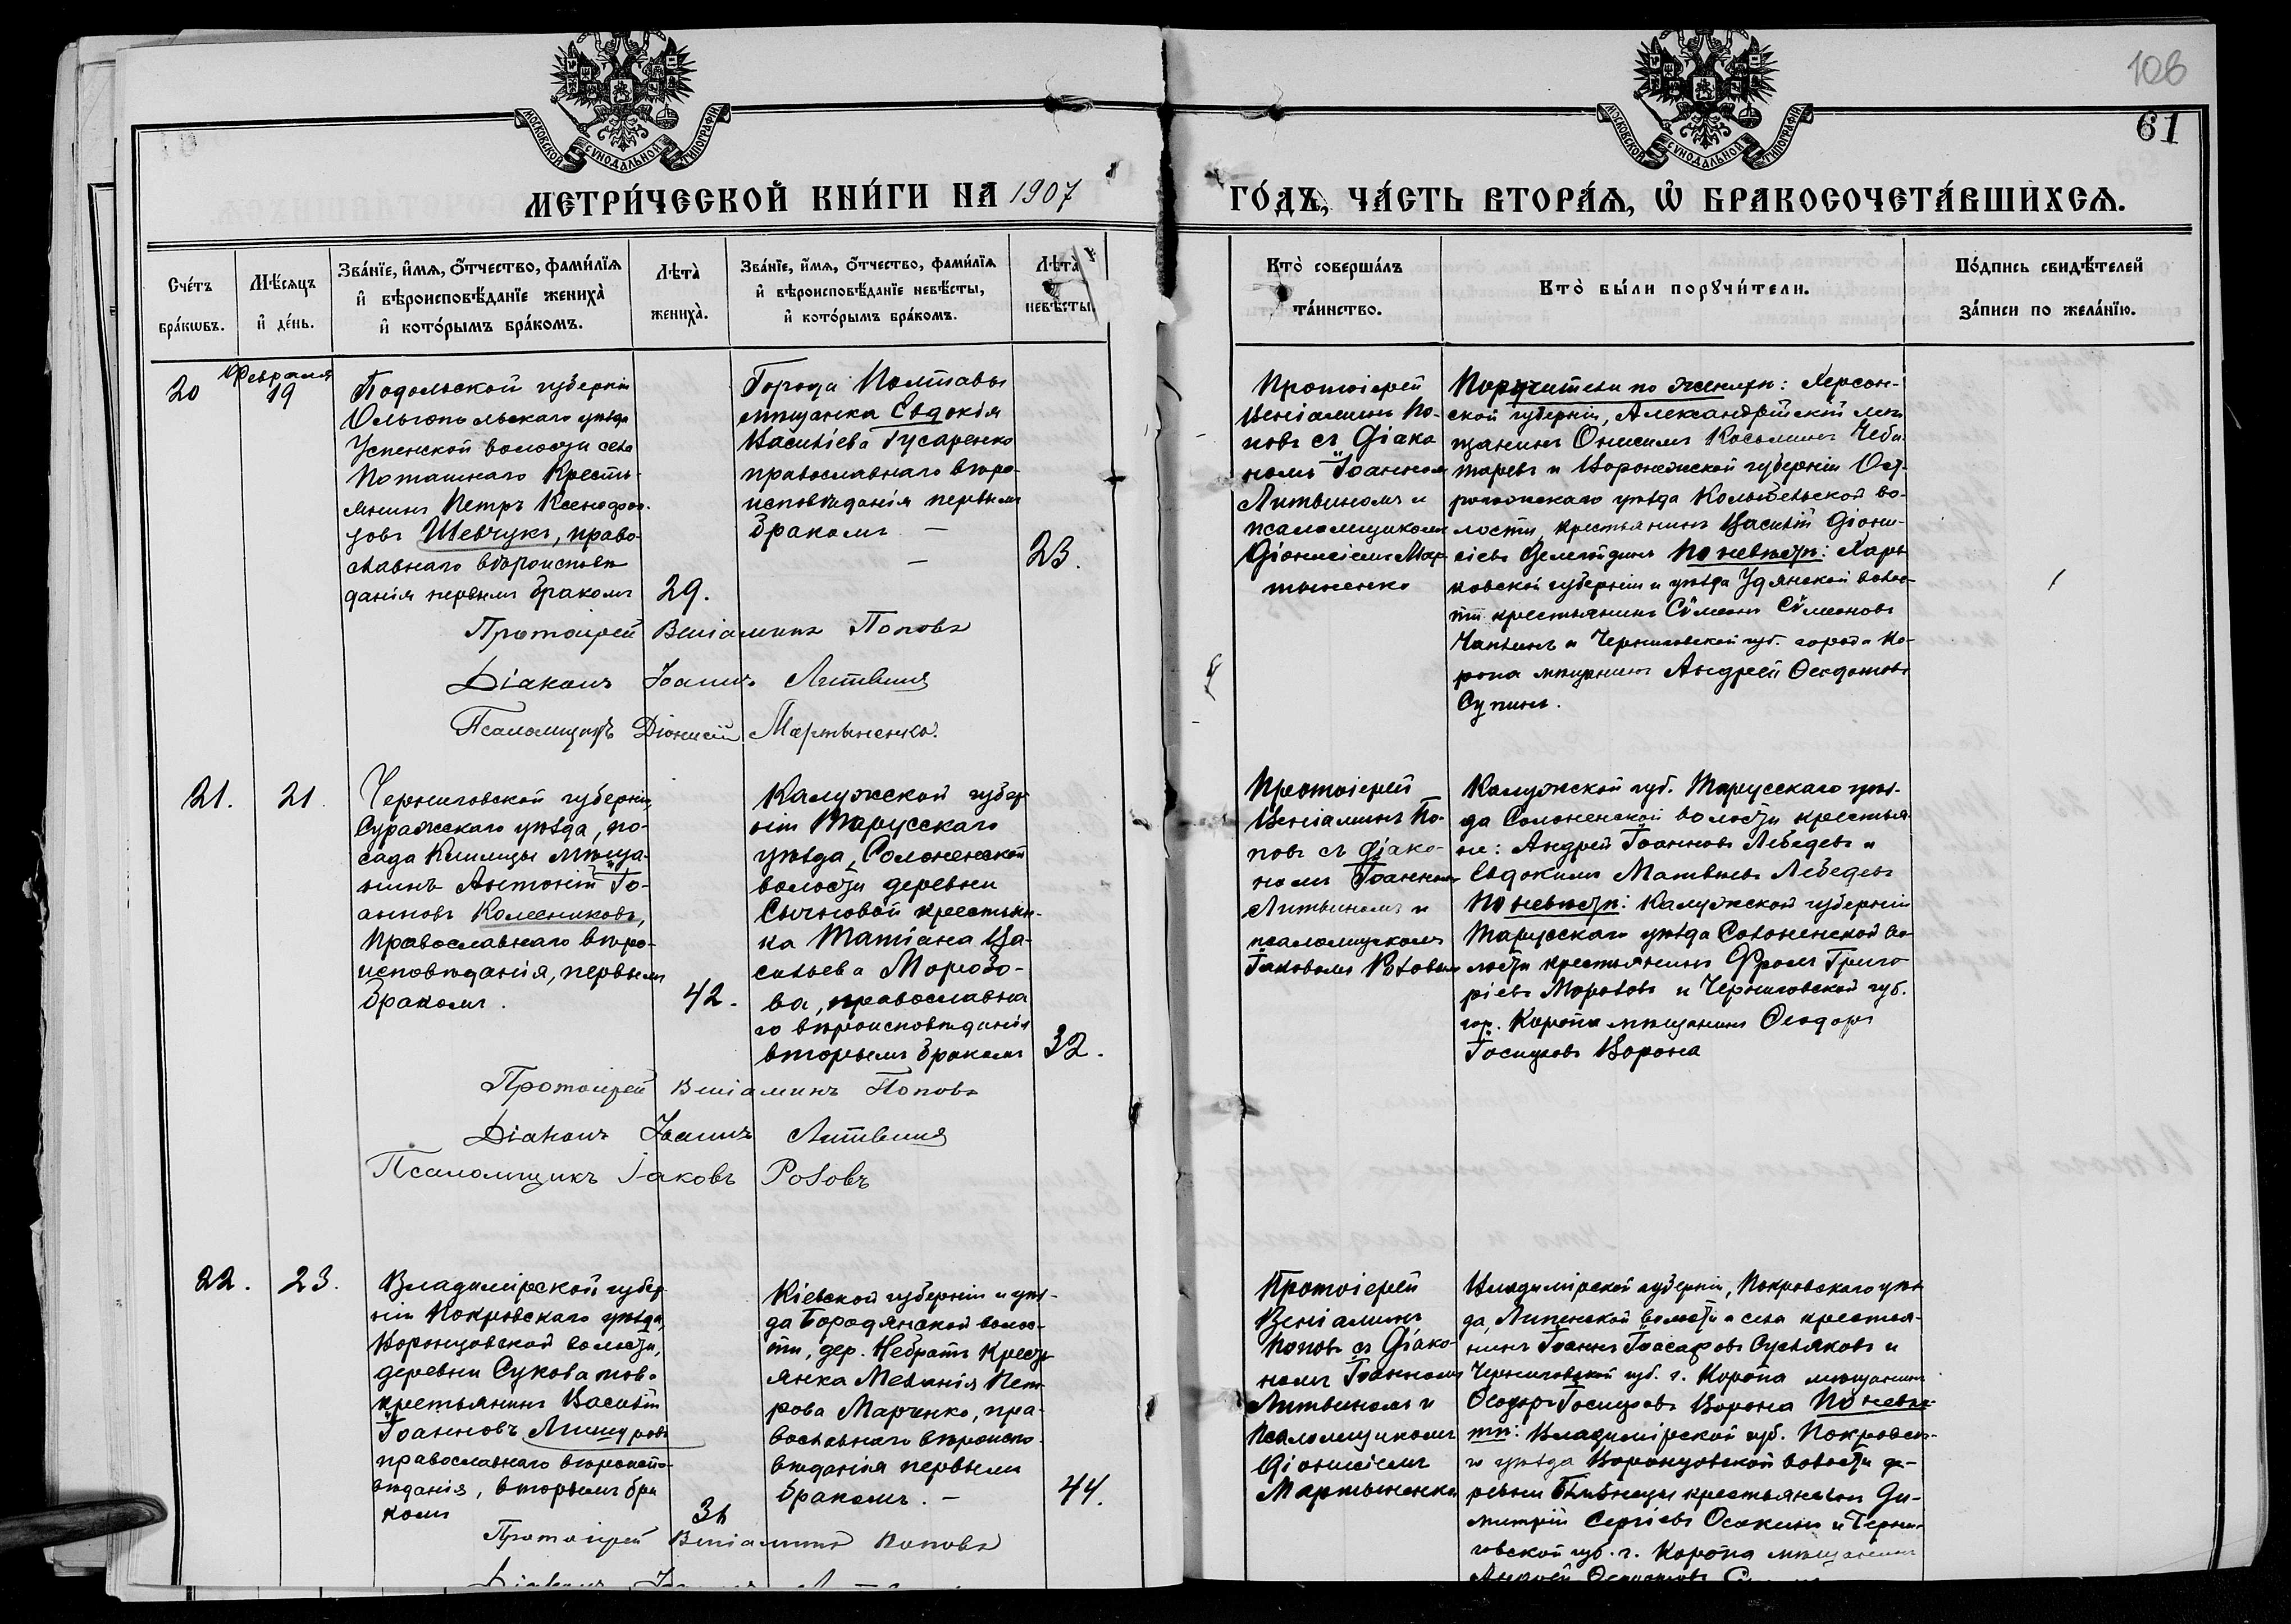 106
61
МОСКОВСКОЙ СѴНОДАЛЬНОЙ ТИПОГРАФІИ
МОСКОВСКОЙ СѴНОДАЛЬНОЙ ТИПОГРАФІИ
МЕТРИ́ЧЕСКОЙ КНИ́ГИ НА 1907
ГО́ДЪ, ЧА́СТЬ ВТОРА́Ѧ, Ѡ҆ БРАКОСОЧЕТА́ВШИХСѦ.
Сче́тъ
бра́кѡвъ.
Мѣ́сѧцъ
и҆ де́нь.
Зва́нїе, и҆́мѧ, ѻ҆́тчество, фами́лїѧ
и҆ вѣроисповѣ́данїе жениха̀
и҆ кото́рымъ бра́комъ.
Лѣта̀
жениха̀.
Зва́нїе, и҆́мѧ, ѻ҆́тчество, фами́лїѧ
и҆ вѣроисповѣ́данїе невѣ́сты,
и҆ кото́рымъ бра́комъ.
Лѣта̀
невѣ́сты.
Кто̀ соверша́лъ
та́инство.
Кто̀ бы́ли порꙋчи́тели.
По́дпись свидѣ́телей
за́писи по жела́нїю.
20
Февраля
19
Подольской губерніи
Ольгопольскаго уѣзда
Успенской волости села
Поташнаго Кресть-
янинъ Петръ Ксенофон-
товъ Шевчукъ, право-
славнаго вѣроисповѣ
данія первымъ бракомъ
29.
Города Полтавы
мѣщанка Евдокія
Васильева Гусаренко
православнаго вѣро-
исповѣданія первымъ
бракомъ —
23.
Протоіерей
Веніаминъ По-
повъ съ діако
номъ Іоанномъ
Литвиномъ и
псаломщикомъ
Діонисіемъ Мар
тыненко
Поручители по женихѣ: Херсон-
ской губерніи, Александрійскій мѣ
щанинъ Онисимъ Косьминъ Чеба
таревъ и Воронежской губерніи Ост-
рогожскаго уѣзда Колыбельской во-
лости, крестьянинъ Василій Діони-
сіевъ По невѣстѣ: Харь
ковской губерніи и уѣзда Удянской волос-
ти крестьянинъ Сѵмеонъ Сѵмеоновъ
Чаплинъ и Черниговской губ. города Ко-
ропа мѣщанинъ Андрей Ѳеодотовъ
Супинъ.
Протоіерей Веніаминъ Поповъ
Діаконъ Іоаннъ Литвинъ
Псаломщикъ Діонисій Мартыненко.
21.
21
Черниговской губерніи,
Суражскаго уѣзда, по-
сада Клинцы мѣща-
нинъ Антоній Іо-
анновъ Колесниковъ,
Православнаго вѣро-
исповѣданія, первымъ
бракомъ.
42.
Калужской губер
ніи Тарусскаго
уѣзда, Солоненской
волости деревни
крестьян-
ка Татіана Ва-
сильева Морозо-
ва, православна
го вѣроисповѣданія
вторымъ бракомъ
32.
Протоіерей
Веніаминъ По-
повъ съ діако-
номъ Іоанномъ
Литвиномъ и
псаломщикомъ
Іаковомъ Розовымъ
Калужской губ. Тарусскаго уѣз-
да Солоненской волости крестья
не: Андрей Іоанновъ Лебедевъ и
Евдокимъ Матвѣевъ Лебедевъ
По невѣстѣ: Калужской губерніи
Тарусскаго уѣзда Солоненской во-
лости крестьянинъ Фролъ Григо
ріевъ Морозовъ и Черниговской губ.
гор. Коропа мѣщанинъ Ѳеодоръ
Іосифовъ Ворона
Протоіерей Веніаминъ Поповъ
Діаконъ Іоаннъ Литвинъ
Псаломщикъ Іаковъ Розовъ
22.
23.
Владимірской губер
ніи Покровскаго уѣзда,
Воронцовской волости,
деревни
крестьянинъ Василій
Іоанновъ Мишуровъ
православнаго вѣроиспо-
вѣданія, вторымъ бра
комъ
Кіевской губерніи и уѣз-
да Бородянской волос-
ти, дер. Небратъ крест
янка Меланія Пет-
рова Марченко, пра-
вославнаго вѣроиспо-
вѣданія первымъ
бракомъ. —
44.
Протоіерей
Веніаминъ
Поповъ съ діако-
номъ Іоанномъ
Литвиномъ и
Псаломщикомъ
Діонисіемъ
Мартыненко
Владимірской губерніи, Покровскаго уѣз
да, Липенской волости и села крестья-
нинъ Іоаннъ Іоасафовъ Сусляковъ и
Черниговской губ. г. Коропа мѣщанинъ
Ѳеодоръ Іосифовъ Ворона По невѣс-
тѣ: Владимірской губ. Покровска-
го уѣзда Воронцовской волости де-
ревни крестьянинъ Ди-
митрій Сергіевъ Осокинъ и Черни-
говской губ. г. Коропа мѣщанинъ
Протоіерей Веніаминъ Поповъ